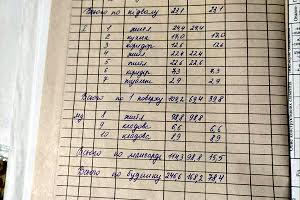 Всього по підвалу 23,1 23,1
I 1 житл. 29,4 29,4
2 кухня 17,0 17,0
3 коридор 12,6 12,6
4 житл. 22,4 22,4
5 житл. 22,6 22,6
6 коридор 7,3 7,3
7 туалет 2,9 2,9
Всього по 1 поверху 109,2 69,4 39,8
8 житл. 98,8 98,8
9 кладова 6,6 6,6
10 кладова 8,9 8,9
Всього по мансарді 114,3 98,8 15,5
Всього по будинку 246,6 168,2 78,4